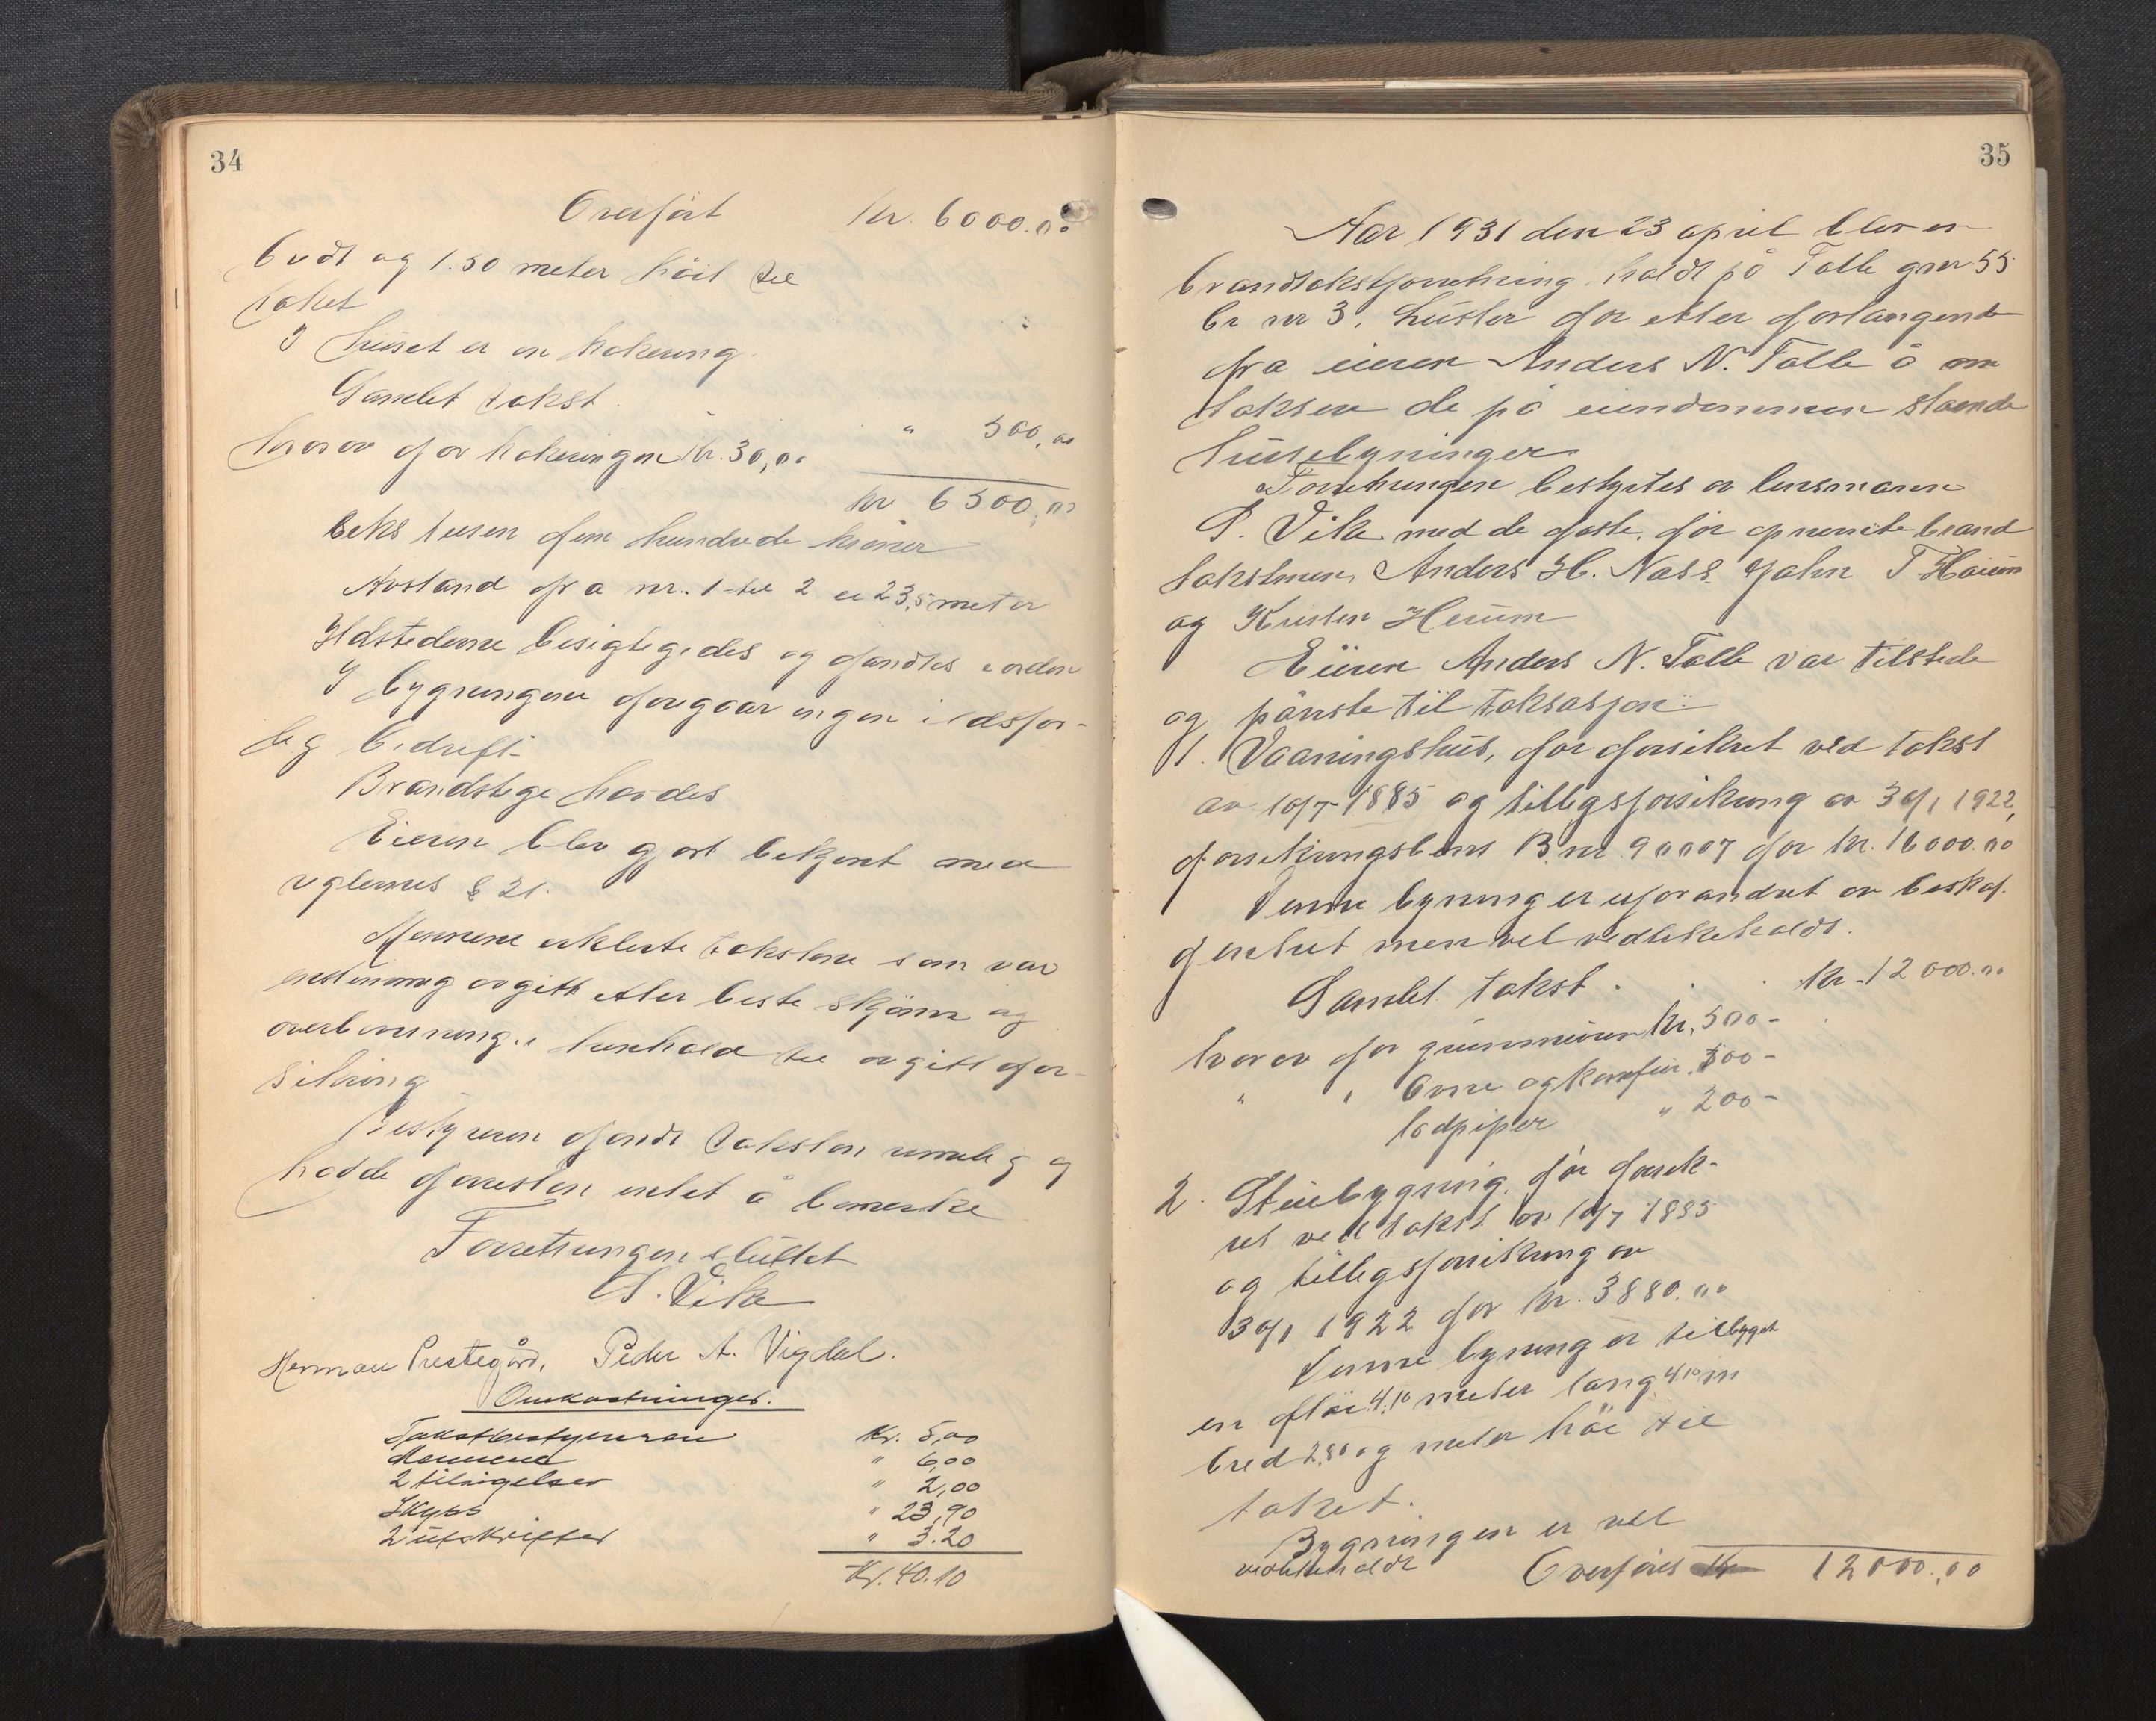 34
Overført Kr. 6000.00
bredt og 1.50 meter høit til
taket
I huset er en bakerovn
Samlet takst
hvorav for bakerovnen Kr. 30,00 " 500,00
kr 6500,00
seks tusen fem hundrede kroner
Avstand fra nr. 1 til 2 er 23,5 meter
Ildstederne besigtegedes og fandtes i orden
I bygningene foregaar ingen ildsfar-
lig bedrift
Brandstige hordes
Eieren blev gjort bekjent med
reglernes § 21.
Mennene erklerte takstene som var
enstemmig avgitt etter beste skjønn og
overbevisning i henhold til avgitt for-
sikring
Bestyreren fandt taksten rimelig og
hadde forresten intet å bemerke
Forretningen sluttet
S. Vik
Herman Prestegård, Peder A. Vigdal.
Omkostninger.
Takstbestyreren Kr. 5,00
Mennene " 6,00
2 tilsigelser " 2,00
Skyss " 23,90
2 utskrifter " 3.20
Kr. 40.10
35
Aar 1931 den 23 april blev en
brandtakstforretning holdt på Talle gnr 55
br nr 3. Luster for etter forlangende
fra eieren Anders N. Talle å om
taksere de på eiendommen staaende
husebyninger
Forretningen bestyrtes av lensmann
S. Vik med de faste, før opnevnte brand
takstmenn Anders H. Nass John T Høium
og Kristen Heium
Eieren Anders N. Talle var tilstede
og påviste til taksasjon:
1. Vaaningshus, før forsikret ved takst
av 10/7 1885 og tillegsforsikring av 30/1 1922,
forsikringsbevis B. nr. 90007 for kr. 16000.00
Denne byning er uforandret av beskaf-
fenhet men vel vedlikeholdt.
Samlet takst . . . kr 12000.00
hvorav for grunnmuren kr. 500-
" " Ovne og komfur 300-
lodpiper " 200-
2. Stuebygning, før forsik-
ret ved takst av 10/7 1885
og tillegsforsikring av
30/1 1922 for kr. 3880.00
Denne byning er tilbygget
en fløi 4,10 meter lang 4.10 m
bred 2,80 og meter høi til
taket.
Bygningen er vel
vedlikeholdt Overføres Kr 12000.00